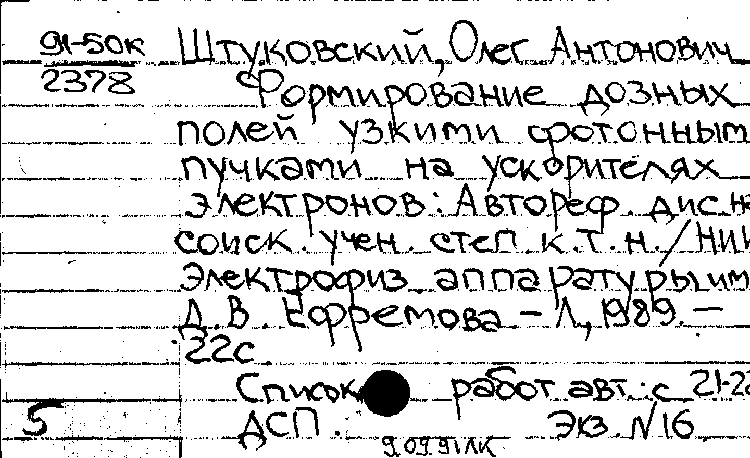 91-50к
2378
Штуковский, Олег Антонович
Формирование дозных
полей узкими фотонным
пучками на ускорителях
электронов: Автореф. дис. на
соиск. учен. степ к.т.н. / НИИ
электрофиз. аппаратуры им
Д.В. Ефремова – Л., 1989. –
22с
Список работ авт.: с 21-22
ДСП. Экз. №16
5
9.09.91 ЛК